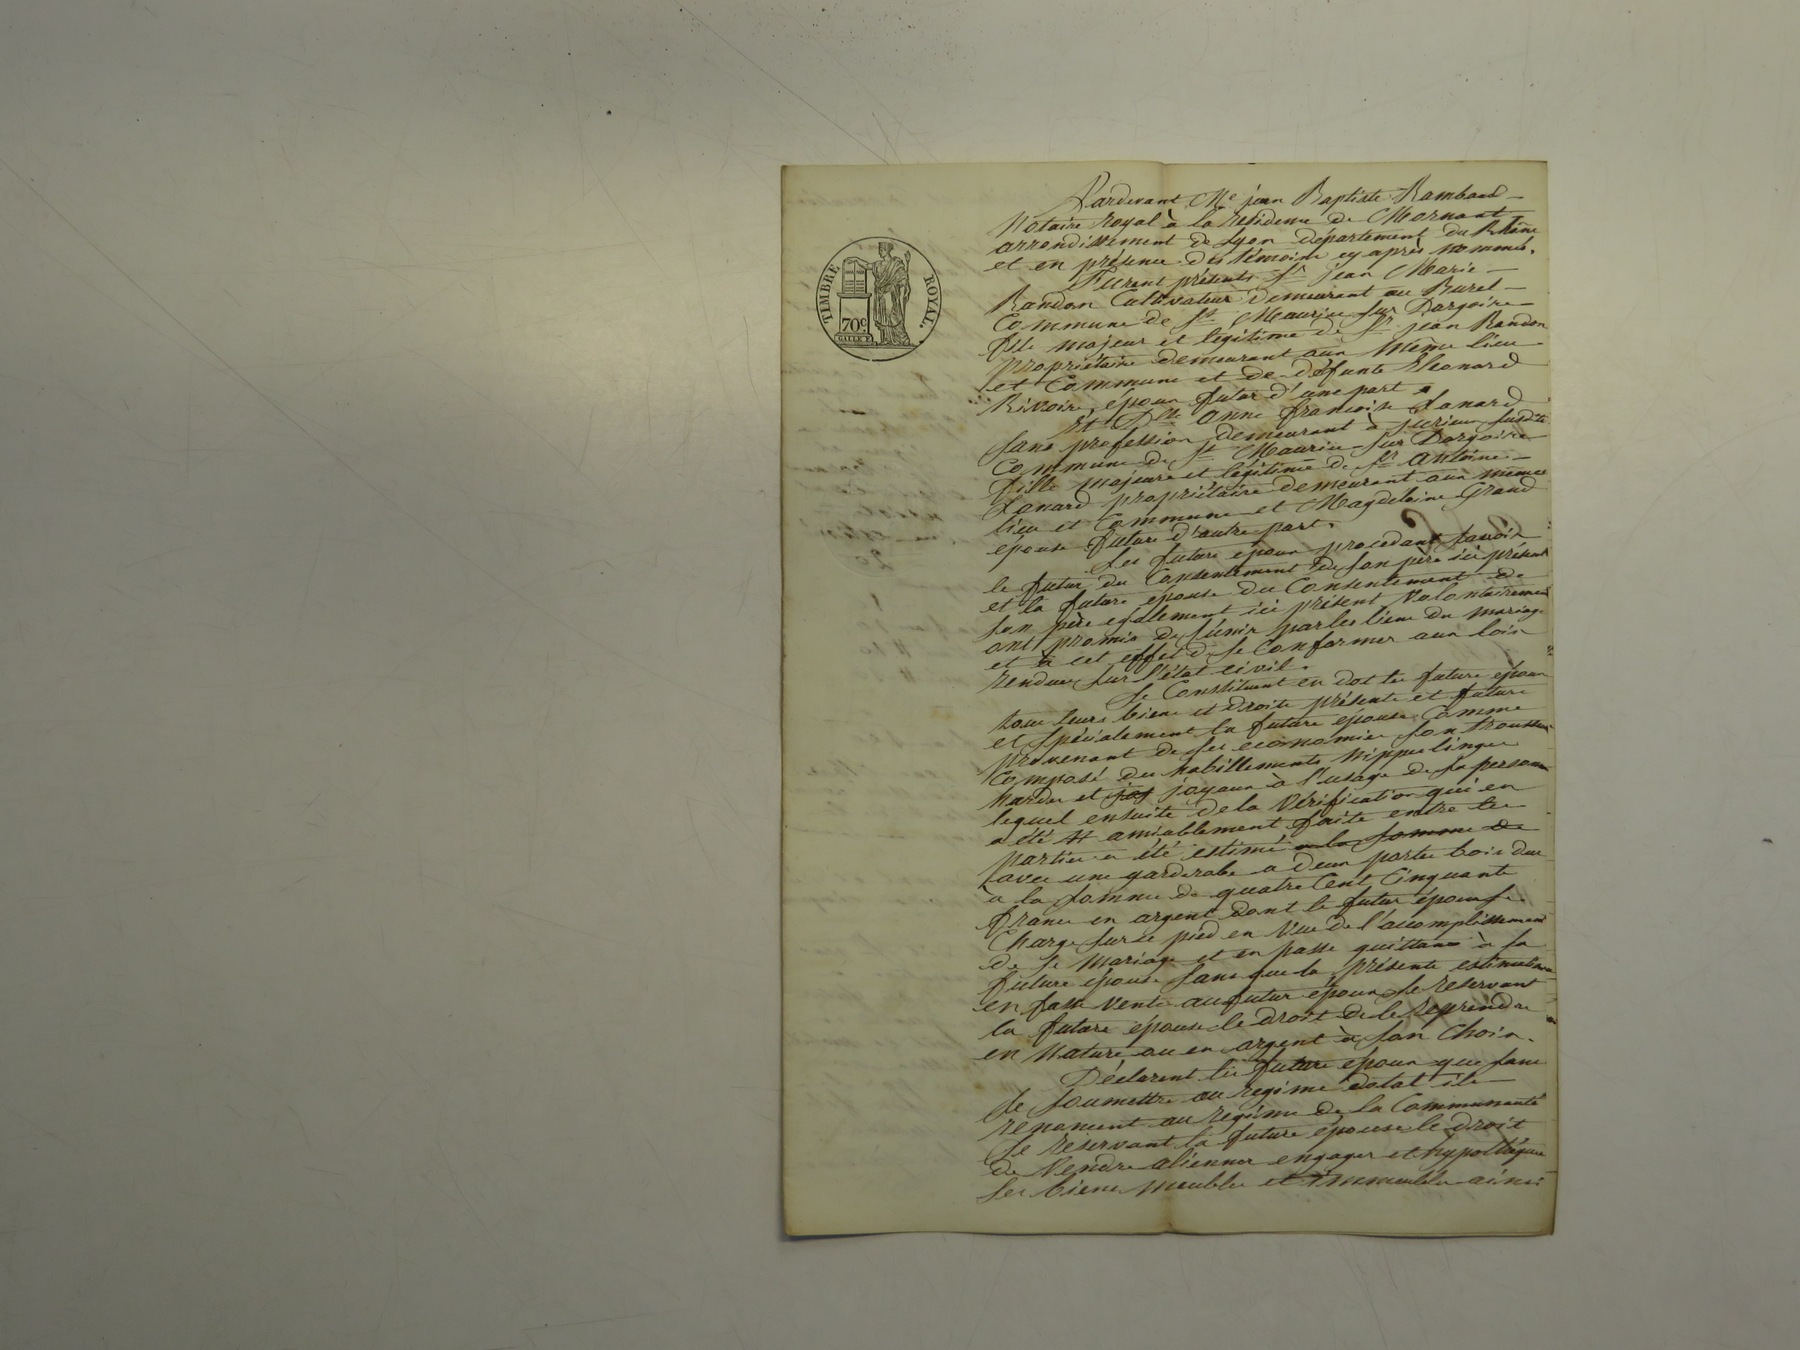 TIMBRE ROYAL.
70c
Pardevant Me jean Baptiste Rambaud
Notaire Royal à la residence de Mornant
arrondissement de Lyon département du Rhône
et en présence des témoins cy après nommés.
Furent présents Sr jean Marie
Randon Cultivateur demeurant au Buret
Commune de St Maurice sur Dargoire
fils majeur et legitime de Sr jean Randon
propriétaire demeurant aux même lieu
et Commune et de défunte Eleonard
Rivoire, epoux futur d'une part
Et Dlle anne françoise Lonard
sans profession demeurant à jurieu susdite
Commune de St Maurice sur Dargoire
fille majeure et légitime de Sr antoine
Lonard propriétaire demeurant aux mêmes
lieu et Commune et Magdeleine Grand
épouse future d'autre part.
Les future epoux procedant savoir
le futur du Consentement de son père ici présent
et la future épouse du Consentement de
son père egallement ici présent volontairement
ont promis de s'unir par les liens du mariage
et à cet effet de se Conformer aux loix
rendues sur l'état civil.
Se Constituent en dot les future époux
tous leurs biens et droits présents et future
et spécialement la future épouse Comme
provenant de ses economies son trousseau
Composé des habillements nippes linges
hardes et joy joyaux à l'usage de sa personne
lequel ensuite de la Vérification qui en
a été amiablement faite entre les
parties a été estimé a la somme de
avec une garderobe a deux portes bois dur
à la somme de quatre Cent Cinquante
francs en argent dont le futur époux se
Charge sur ce pied en Vue de l'acomplissement
de se Mariage et en passe quittance à sa
future épouse sans que la présente estimation
en fasse vente au futur époux se reservant
la future épouse le droit de le reprendre
en Nature ou en argent à son Choix.
Déclarent les future epoux que sans
se soumettre au regime dotal ils
renoncent au regime de la Communauté
se reservant la future épouse le droit
de Vendre alienner engager et hypotéquer
ses biens meubles et immeubles ainsi